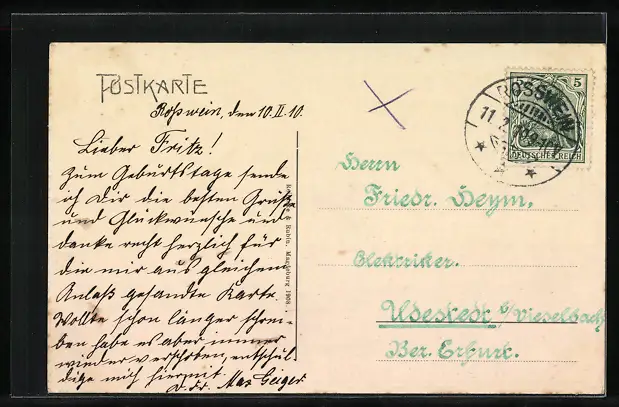 POSTKARTE
Roßwein, den 10.II.10.
Lieber Fritz!
Zum Geburtstage sende
ich Dir die besten Grüße
und Glückwünsche und
danke recht herzlich für
die mir aus gleichem
Anlaß gesandte Karte.
Wollte schon länger schrei-
ben habe es aber immer
wieder verschoben, entschul-
dige mich hiermit.
D. Fr. Max Geiger
& Rubin, Magdeburg 1908.
5
ROSSWEIN
11.2.
DEUTSCHES REICH
Herrn
Friedr. Heym,
Elektriker.
Udestedt b/Vieselbach
Ber. Erfurt.